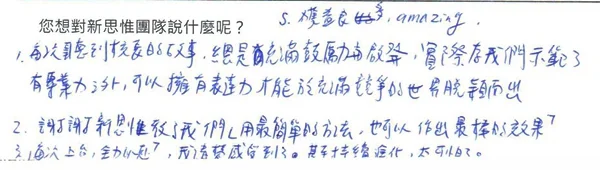 您想對新思惟團隊說什麼呢？
5. 獲益良多, amazing.
1. 每次聽到校長的故事，總是充滿鼓勵與啟發，實際在我們示範了
有專業力之外，可以擁有表達力才能於充滿競爭的世界脫穎而出
2. 謝謝新思惟教了我們用最簡單的方法，也可以作出最棒的效果
3. 每次上台，全力，我清楚感受到。甚至持續進化，太可怕了。